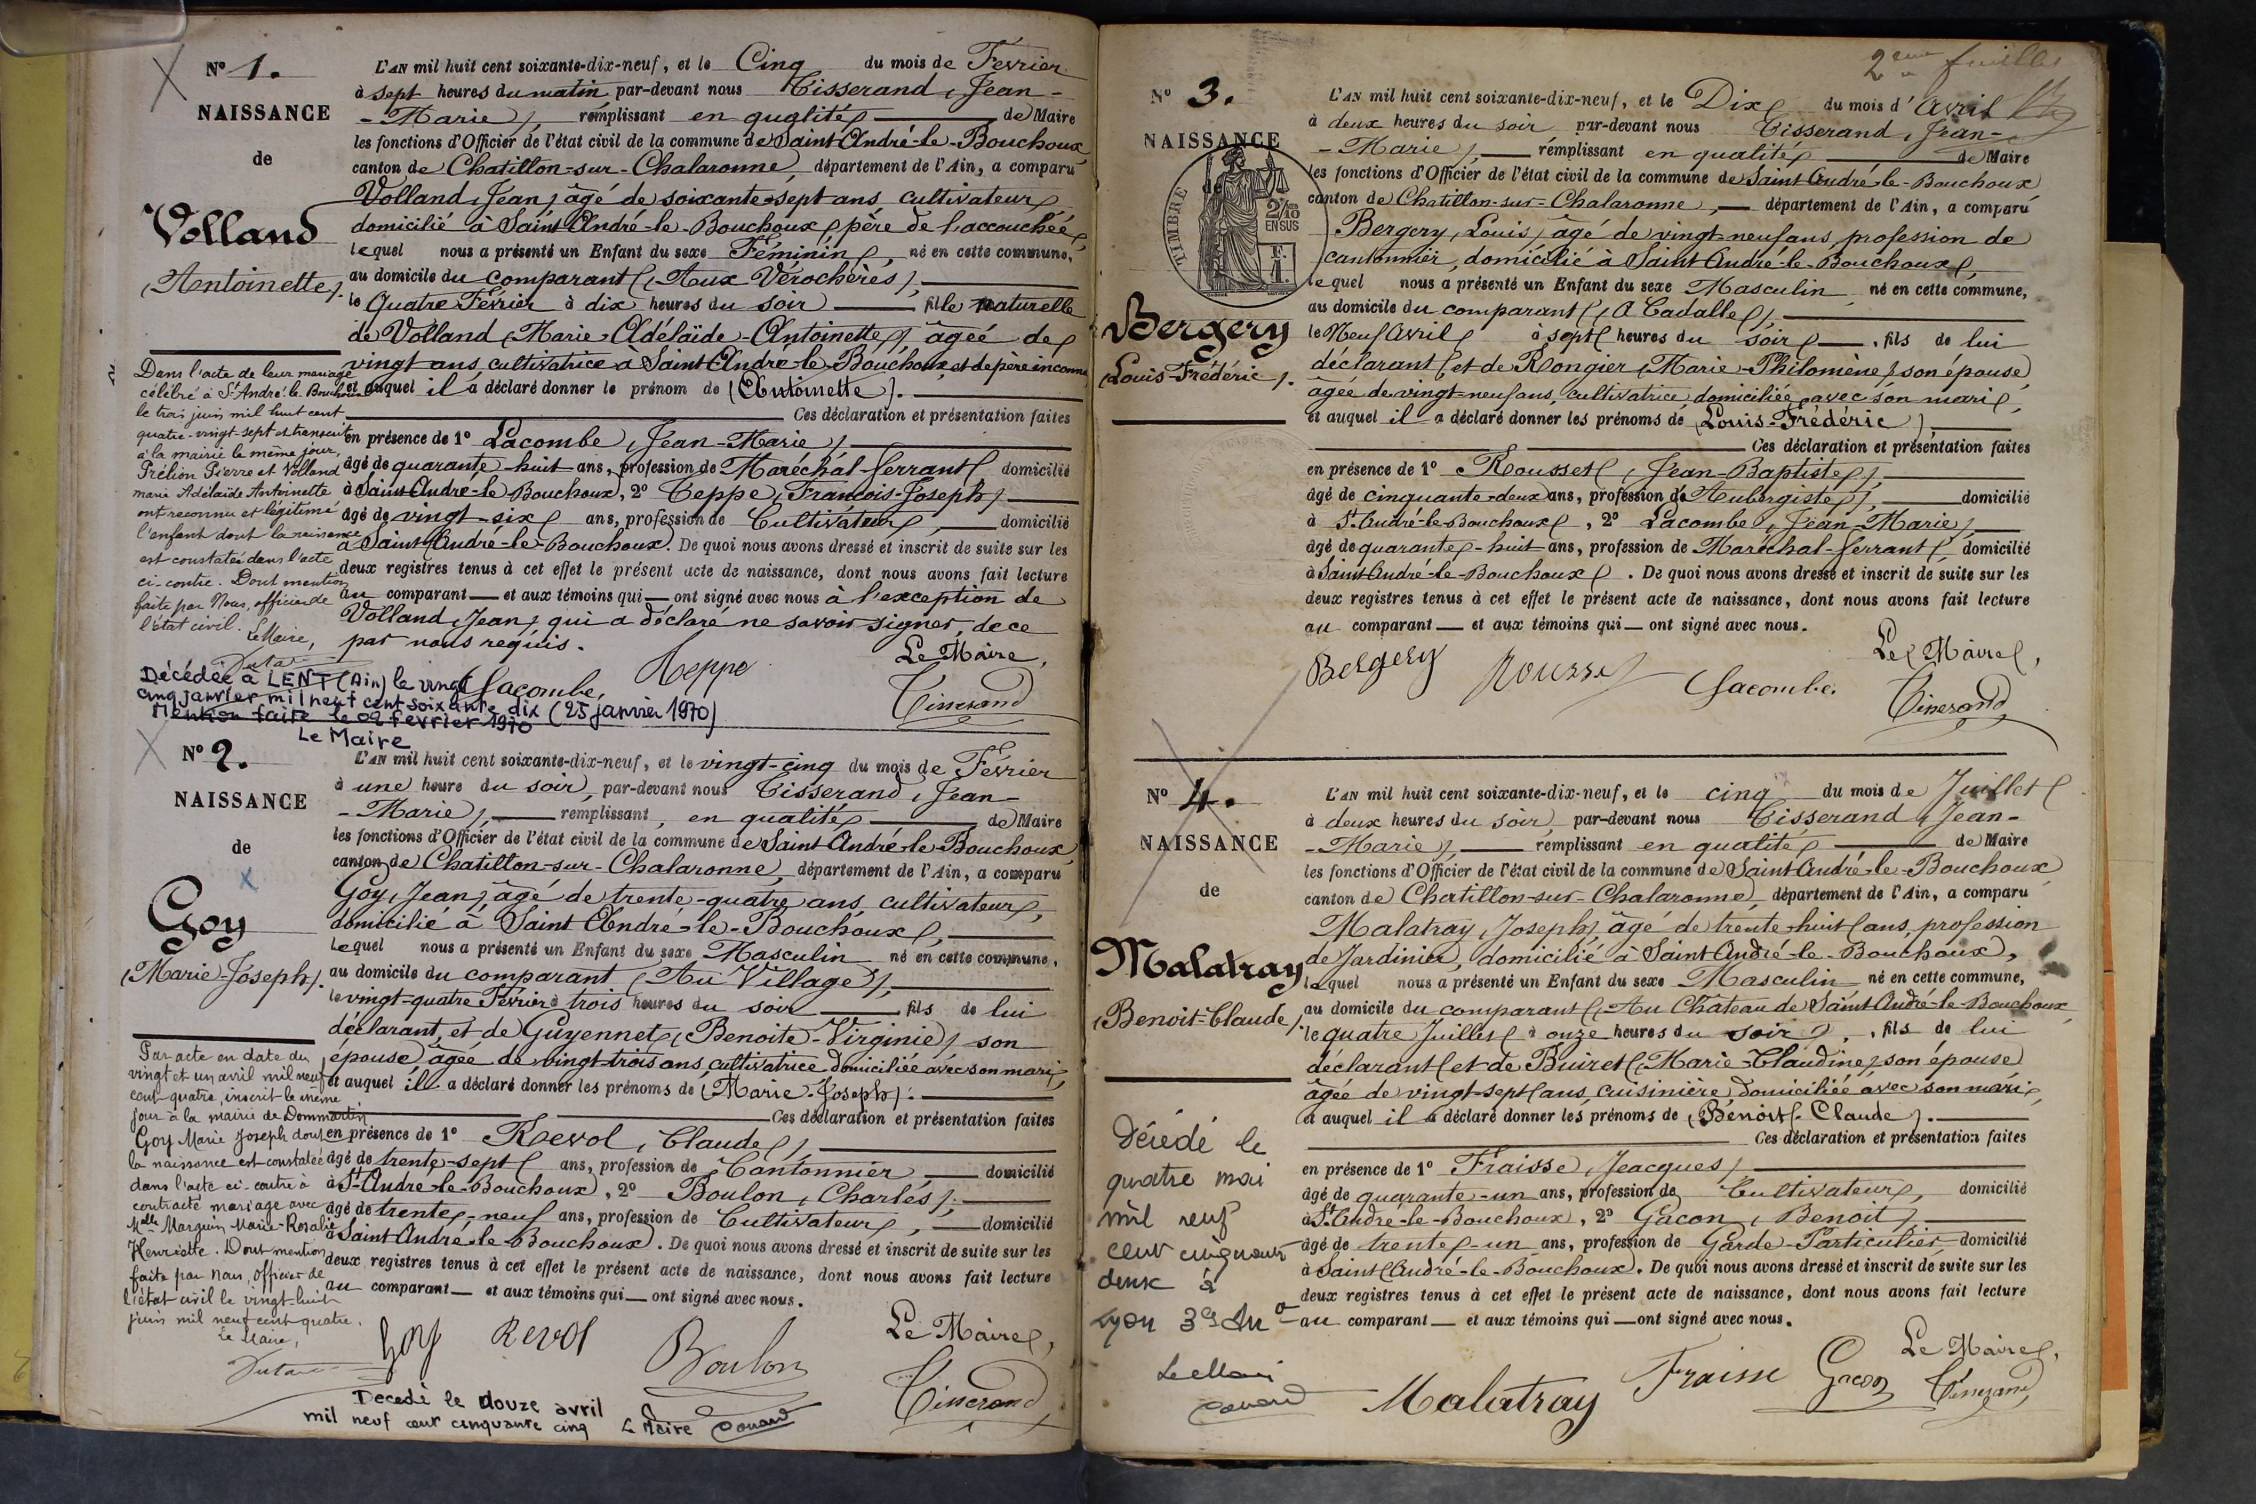 N° 1.
NAISSANCE
de
Volland
(Antoinette).
L'AN mil huit cent soixante-dix-neuf, et le Cinq du mois de Février
à sept heures du matin par-devant nous Tisserand, Jean-
-Marie), remplissant en qualité de Maire
les fonctions d'Officier de l'état civil de la commune de Saint-André-le-Bouchoux
canton de Chatillon-sur-Chalaronne, département de l'Ain, a comparu
Volland, Jean, âgé de soixante-sept ans, cultivateur,
domicilié à Saint-André-le-Bouchoux, père de l'accouchée,
lequel nous a présenté un Enfant du sexe Féminin, né en cette commune,
au domicile du comparant (Aux Vérochères),
le Quatre Février à dix heures du soir fille naturelle
de Volland (Marie-Adélaïde-Antoinette), âgée de
vingt ans, cultivatrice à Saint-André-le-Bouchoux, et de père inconnu
et auquel il a déclaré donner le prénom de (Antoinette).
Ces déclaration et présentation faites
en présence de 1° Lacombe, Jean-Marie),
âgé de quarante-huit ans, profession de Maréchal-ferrant domicilié
à Saint-André-le-Bouchoux, 2° Teppe, François-Joseph)
âgé de vingt-six ans, profession de Cultivateur, domicilié
à Saint-André-le-Bouchoux. De quoi nous avons dressé et inscrit de suite sur les
deux registres tenus à cet effet le présent acte de naissance, dont nous avons fait lecture
au comparant — et aux témoins qui — ont signé avec nous à l'exception de
Volland, Jean, qui a déclaré ne savoir signer, de ce
par nous requis.
Le Maire,
Lacombe, Teppe Tisserand
Dans l'acte de leur mariage
célébré à St André le Bouchoux
le trois juin mil huit cent
quatre-vingt-sept et transcrit
à la mairie le même jour,
Prélion Pierre et Volland
marie Adélaïde Antoinette
ont reconnu et légitimé
l'enfant dont la naissance
est constatée dans l'acte
ci-contre. Dont mention
faite par Nous, officier de
l'état civil.
Le Maire,
Décédée à LENT (Ain) le vingt
cinq janvier mil neuf cent soixante dix (25 janvier 1970)
Mention faite le 02 février 1970
Le Maire
N° 2.
NAISSANCE
de
Goy
(Marie-Joseph).
L'AN mil huit cent soixante-dix-neuf, et le vingt-cinq du mois de Février
à une heure du soir, par-devant nous Tisserand, Jean-
-Marie), remplissant, en qualité de Maire
les fonctions d'Officier de l'état civil de la commune de Saint-André-le-Bouchoux
canton de Chatillon-sur-Chalaronne, département de l'Ain, a comparu
Goy, Jean, âgé de trente-quatre ans, cultivateur,
domicilié à Saint André-le-Bouchoux,
lequel nous a présenté un Enfant du sexe Masculin né en cette commune,
au domicile du comparant (Au Village),
le vingt-quatre Février à trois heures du soir fils de lui
déclarant, et de Guyennet, (Benoite-Virginie) son
épouse) âgée de vingt-trois ans, cultivatrice domiciliée avec son mari,
et auquel il a déclaré donner les prénoms de (Marie-Joseph).
Ces déclaration et présentation faites
en présence de 1° Revol, Claude),
âgé de trente-sept ans, profession de Cantonnier, domicilié
à St André-le-Bouchoux, 2° Boulon, Charles),
âgé de trente-neuf ans, profession de Cultivateur, domicilié
à Saint André-le-Bouchoux. De quoi nous avons dressé et inscrit de suite sur les
deux registres tenus à cet effet le présent acte de naissance, dont nous avons fait lecture
au comparant — et aux témoins qui — ont signé avec nous.
Le Maire,
Goy Revol Boulon Tisserand
Par acte en date du
vingt et un avril mil neuf
cent quatre, inscrit le même
jour à la mairie de Dommartin
Goy Marie Joseph dont
la naissance est constatée
dans l'acte ci-contre a
contracté mariage avec
Melle Marguin Marie-Rosalie
Henriette. Dont mention
faite par Nous, officier de
l'état civil le vingt-huit
juin mil neuf cent quatre.
Le Maire,
Decedé le douze avril
mil neuf cent cinquante cinq Le Maire
2eme feuille
N° 3.
NAISSANCE
de
TIMBRE
2/10
EN SUS
F.
1.
Bergery
(Louis-Frédéric).
L'AN mil huit cent soixante-dix-neuf, et le Dix du mois d'Avril
à deux heures du soir par-devant nous Tisserand, Jean-
-Marie), remplissant en qualité de Maire
les fonctions d'Officier de l'état civil de la commune de Saint-André-le-Bouchoux
canton de Chatillon-sur-Chalaronne, département de l'Ain, a comparu
Bergery, Louis, âgé de vingt-neuf ans, profession de
cantonnier, domicilié à Saint-André-le-Bouchoux,
lequel nous a présenté un Enfant du sexe Masculin né en cette commune,
au domicile du comparant (A Cadalle),
le Neuf Avril à sept heures du soir, fils de lui
déclarant et de Rongier (Marie-Philomène), son épouse
âgée de vingt-neuf ans, cultivatrice domiciliée avec son mari,
et auquel il a déclaré donner les prénoms de (Louis-Frédéric),
Ces déclaration et présentation faites
en présence de 1° Rousset, Jean-Baptiste),
âgé de cinquante-deux ans, profession d'Aubergiste, domicilié
à St André-le-Bouchoux, 2° Lacombe, Jean-Marie,
âgé de quarante-huit ans, profession de Maréchal-ferrant, domicilié
à Saint-André-le-Bouchoux. De quoi nous avons dressé et inscrit de suite sur les
deux registres tenus à cet effet le présent acte de naissance, dont nous avons fait lecture
au comparant — et aux témoins qui — ont signé avec nous.
Le Maire,
Bergery Rousset Lacombe. Tisserand
N° 4.
NAISSANCE
de
Malatray
(Benoit-Claude).
L'AN mil huit cent soixante-dix-neuf, et le cinq du mois de Juillet
à deux heures du soir, par-devant nous Tisserand, Jean-
-Marie), remplissant en qualité de Maire
les fonctions d'Officier de l'état civil de la commune de Saint André-le-Bouchoux
canton de Chatillon-sur-Chalaronne, département de l'Ain, a comparu
Malatray, Joseph, âgé de trente-huit ans, profession
de Jardinier, domicilié à Saint-André-le-Bouchoux,
lequel nous a présenté un Enfant du sexe Masculin né en cette commune,
au domicile du comparant (Au Château de Saint André-le-Bouchoux
le quatre Juillet à onze heures du soir, fils de lui
déclarant et de Buiret (Marie-Claudine), son épouse
âgée de vingt-sept ans, cuisinière, domiciliée avec son mari,
et auquel il a déclaré donner les prénoms de (Benoit-Claude).
Ces déclaration et présentation faites
en présence de 1° Fraisse, Jeacques)
âgé de quarante-un ans, profession de Cultivateur, domicilié
à St André-le-Bouchoux, 2° Gacon, Benoit)
âgé de trente-un ans, profession de Garde-Particulier domicilié
à Saint-André-le-Bouchoux. De quoi nous avons dressé et inscrit de suite sur les
deux registres tenus à cet effet le présent acte de naissance, dont nous avons fait lecture
au comparant — et aux témoins qui — ont signé avec nous.
Le Maire,
Malatray Fraisse Gacon Tisserand
Décédé le
quatre mai
mil neuf
cent cinquante
deux à
Lyon 3e Arr
Le Maire